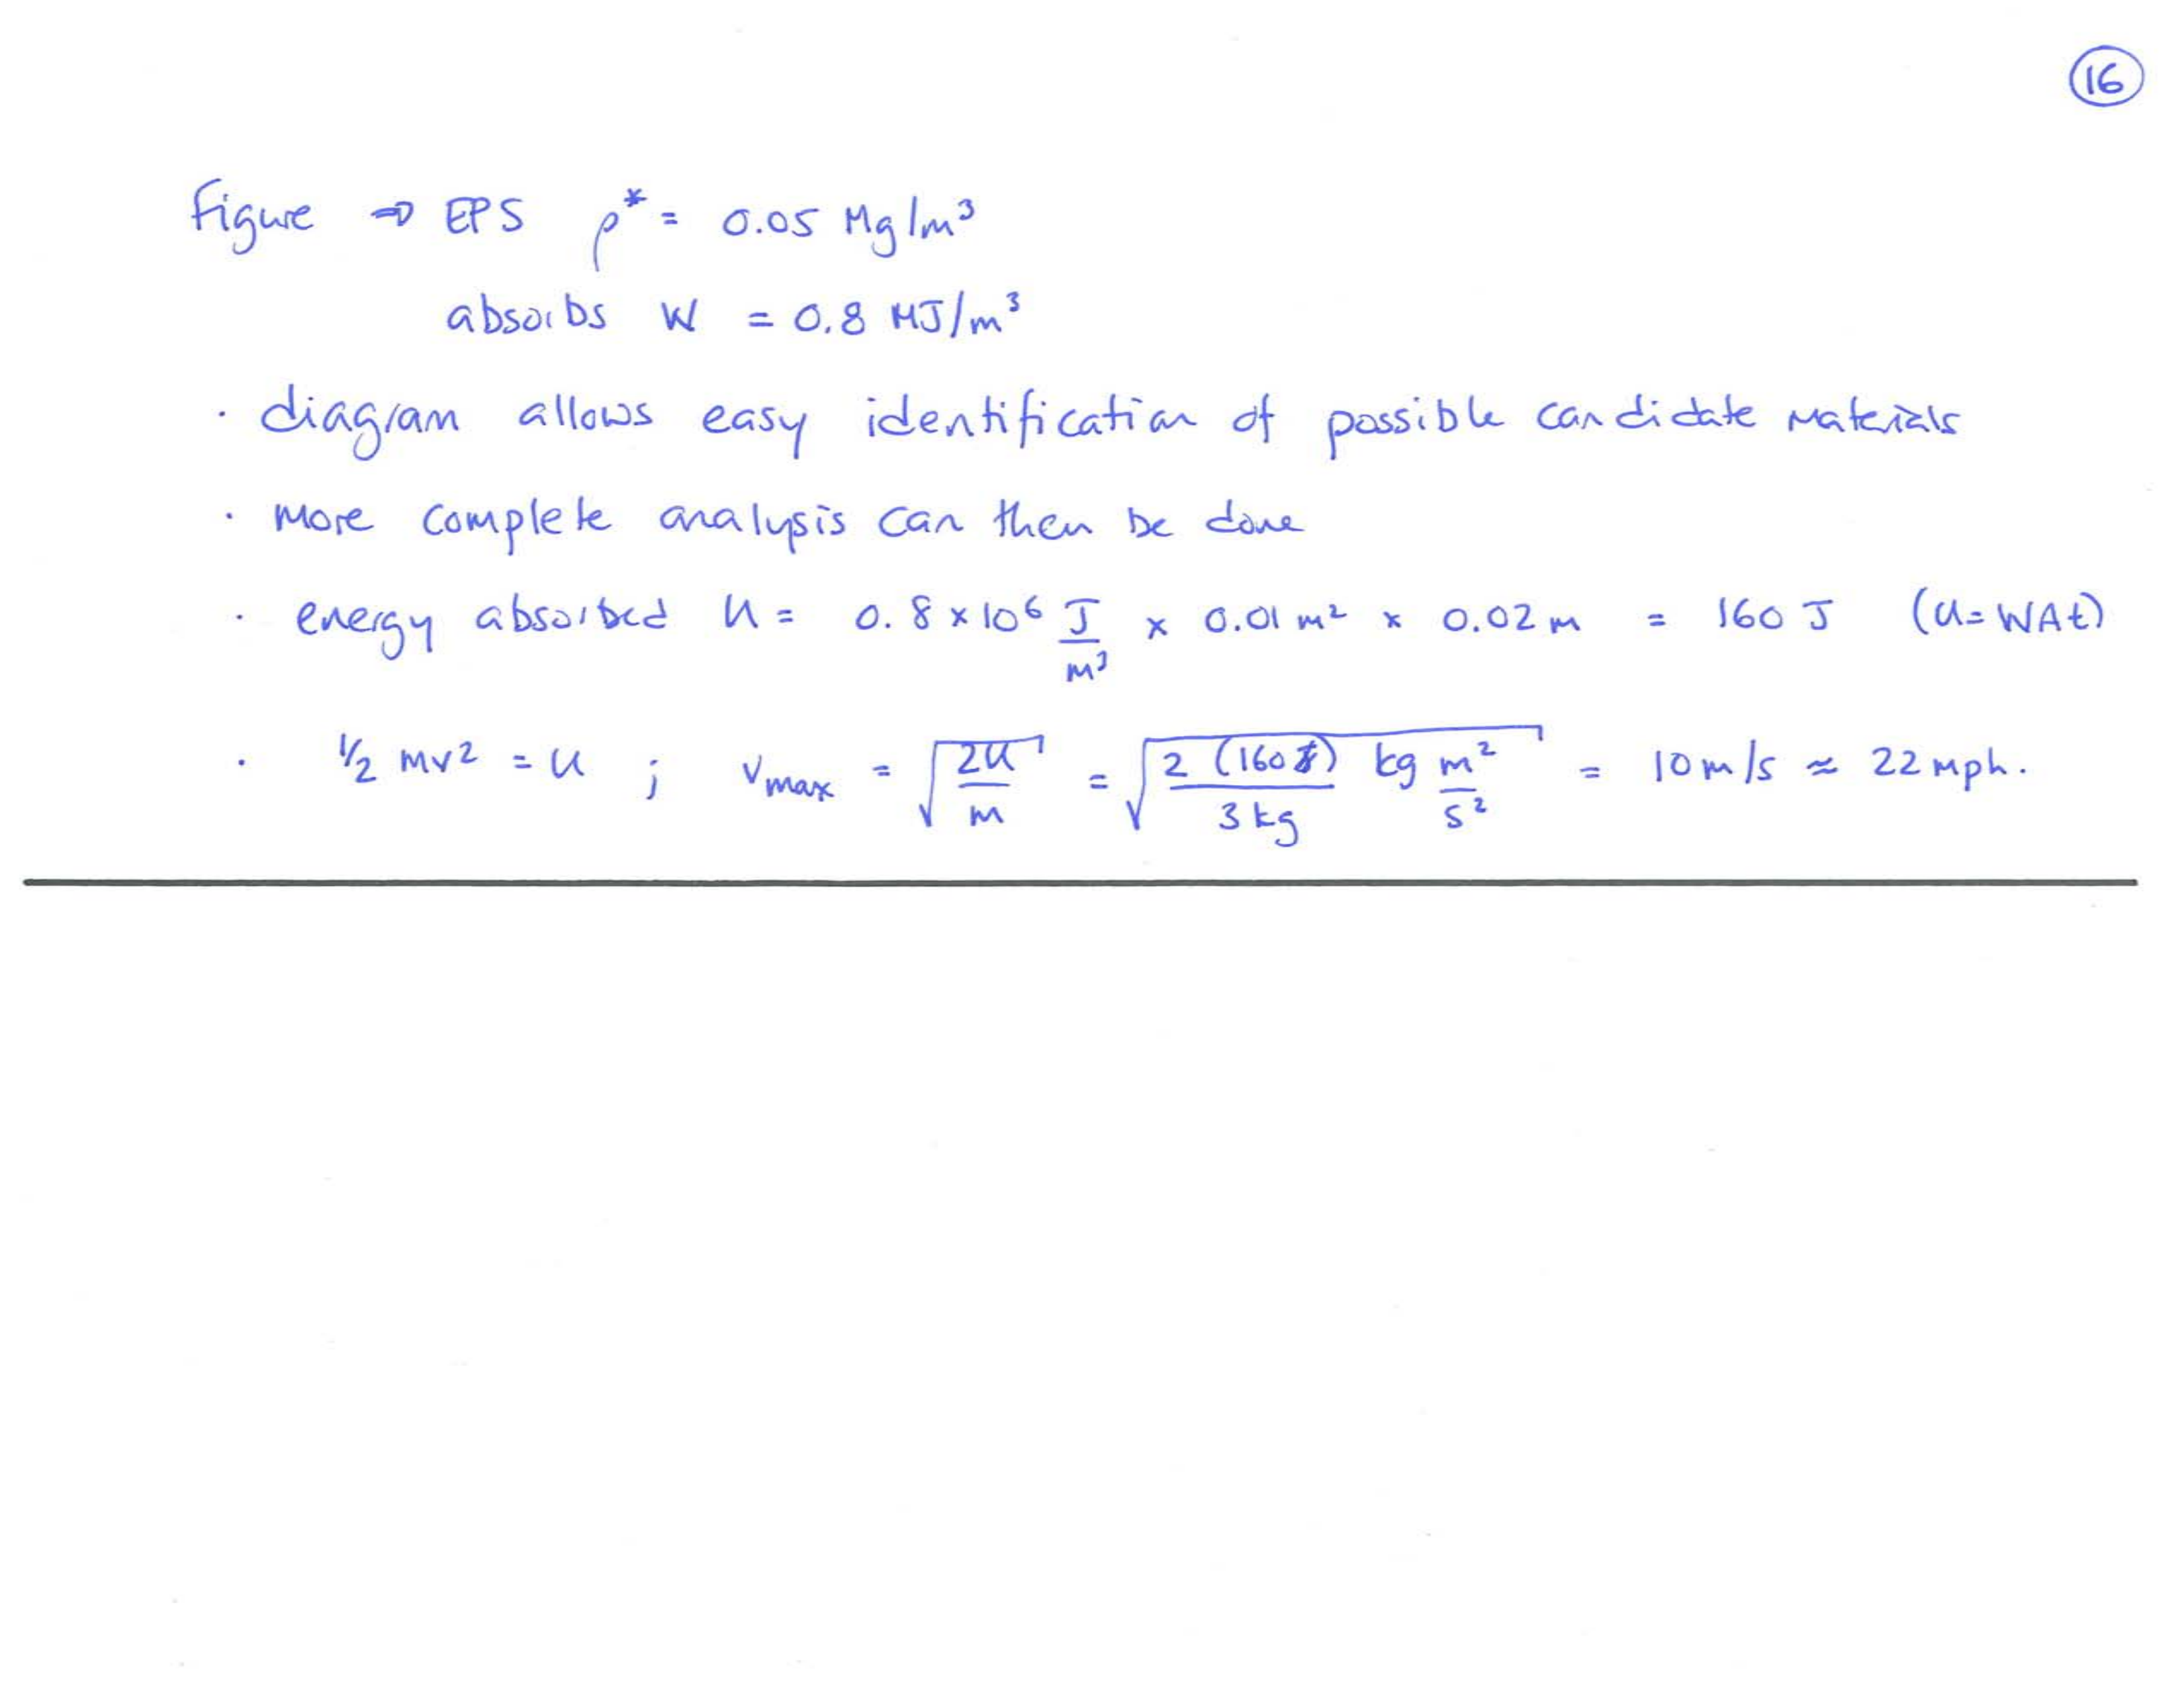 16
Figure ⇒ EPS ρ* = 0.05 Mg/m³
absorbs W = 0.8 MJ/m³
· diagram allows easy identification of possible candidate materials
· more complete analysis can then be done
· energy absorbed U = 0.8 × 10⁶ J/m³ × 0.01 m² × 0.02 m = 160 J (U = WAt)
· ½ mv² = U ; v_max = √(2U/m) = √(2 (160) / 3 kg kg m²/s²) = 10 m/s ≈ 22 mph.